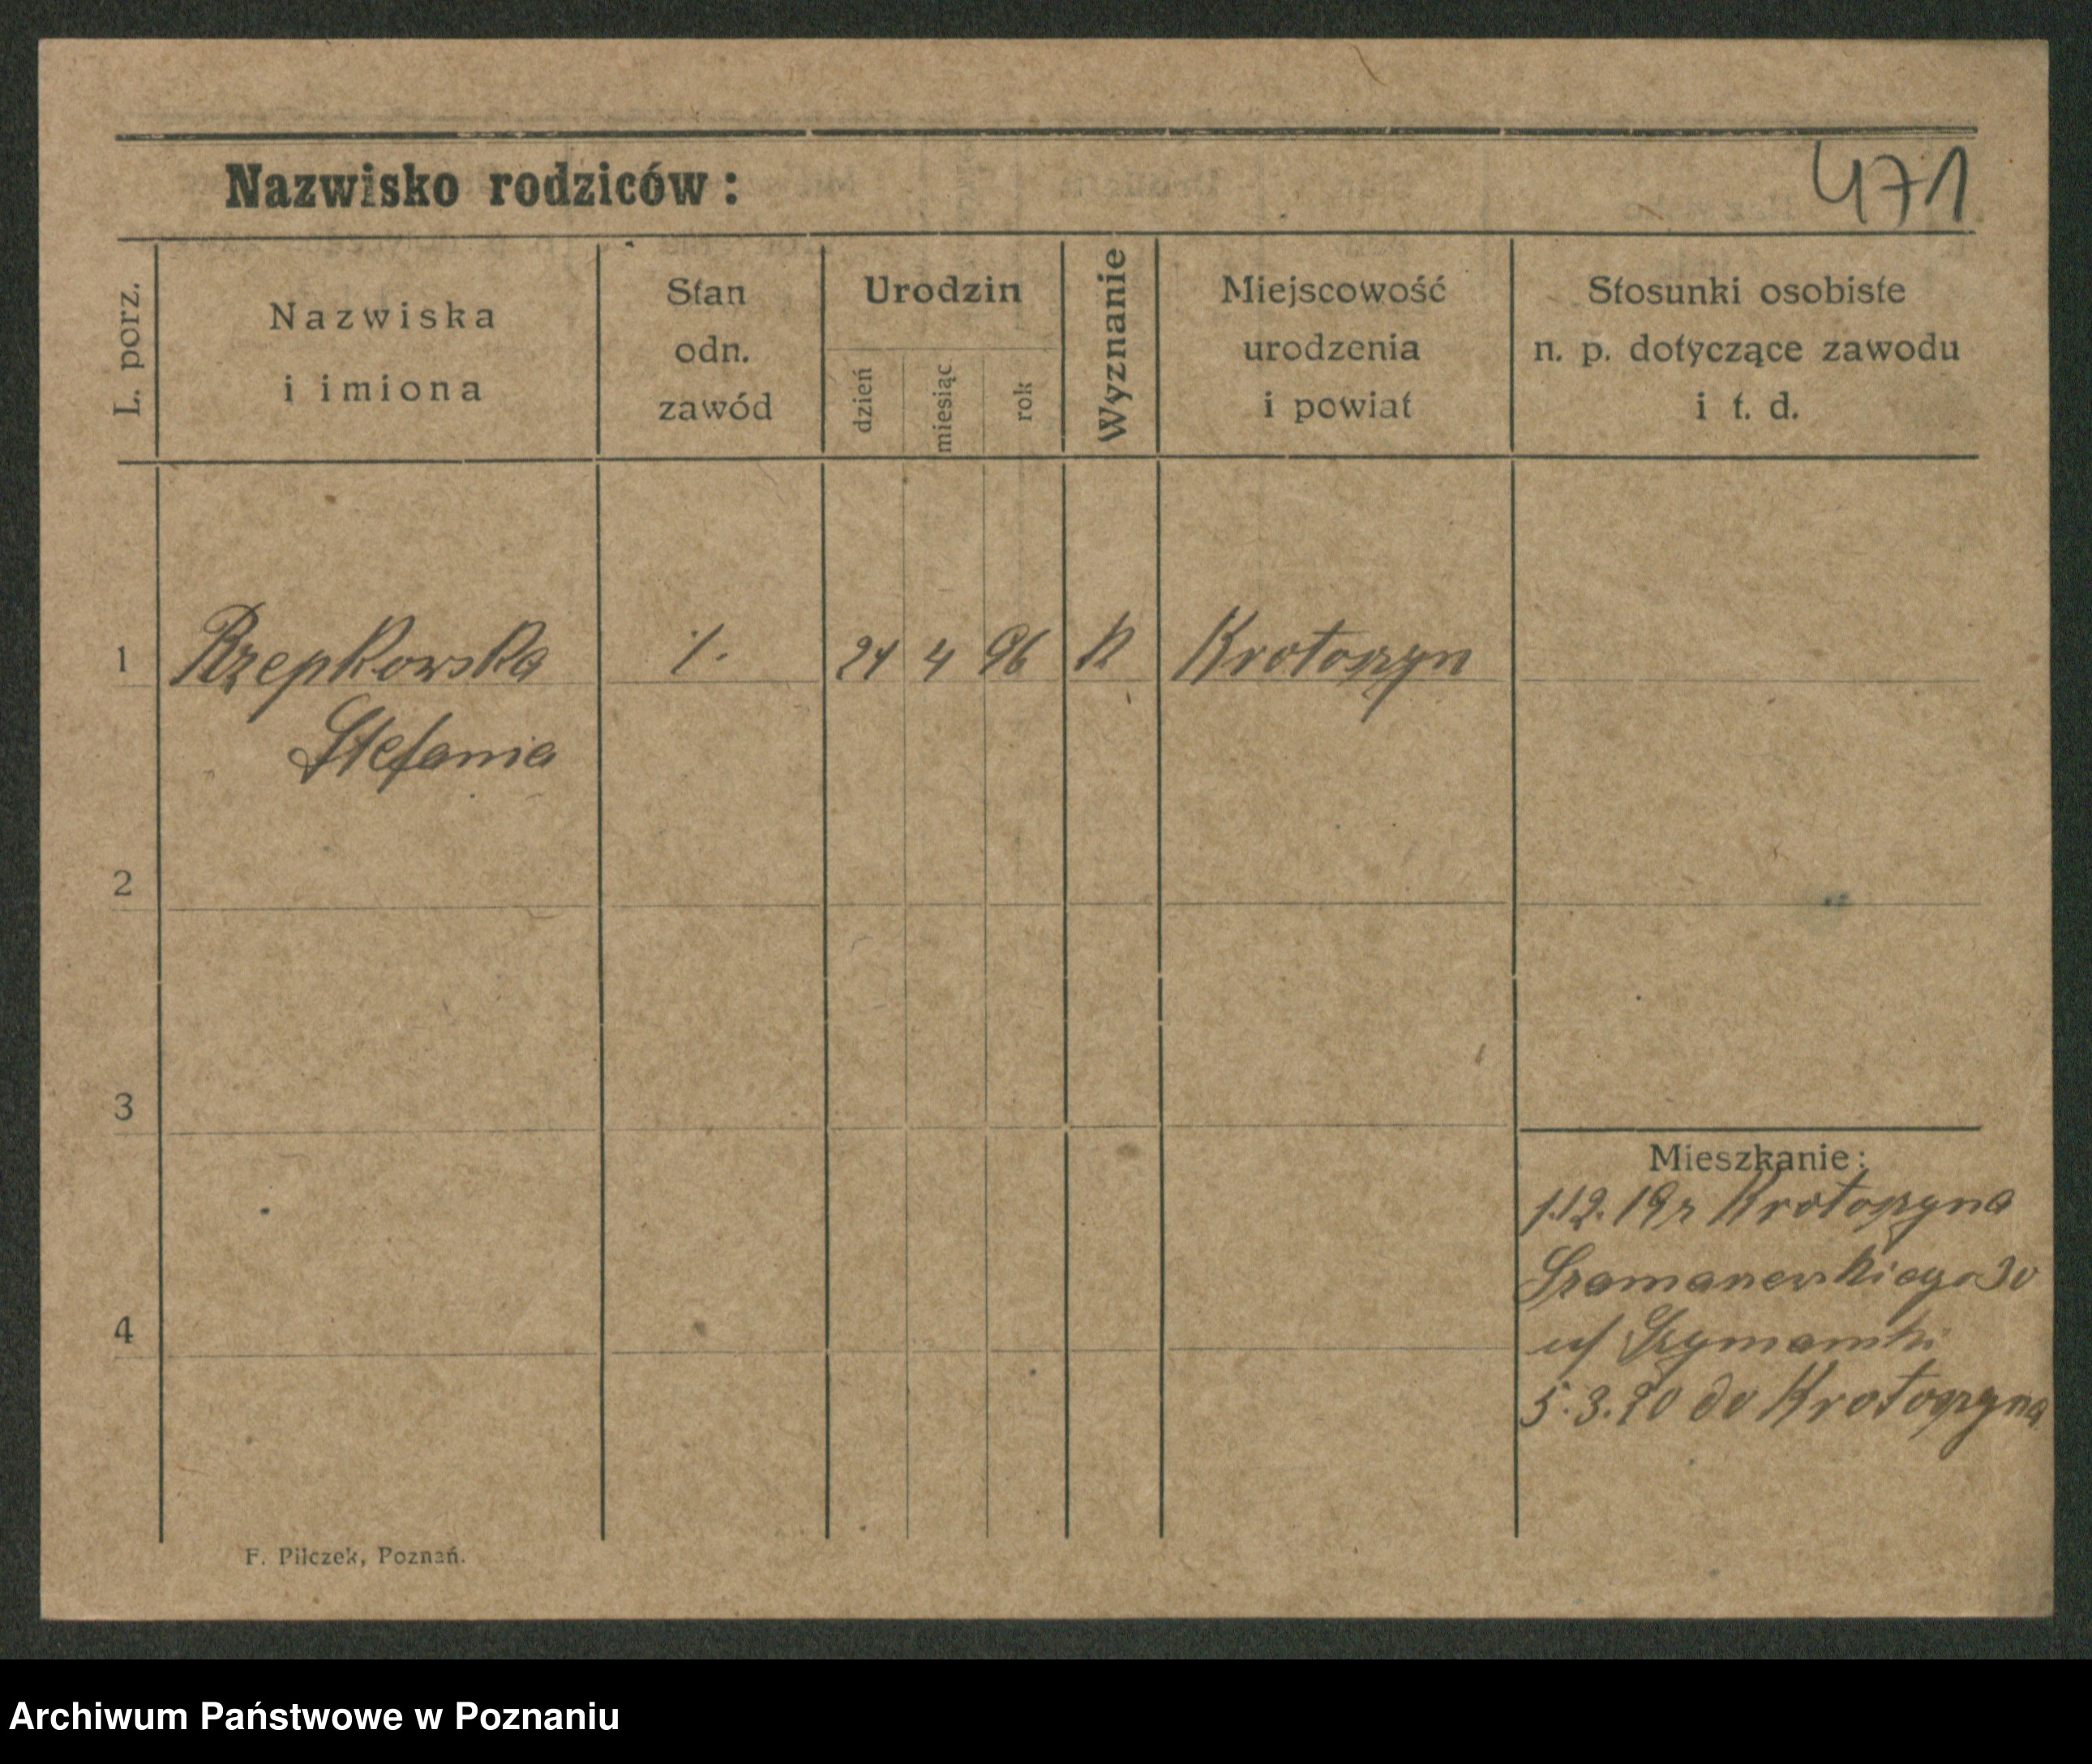 471
Nazwisko rodziców:
L. porz.
Nazwiska
i imiona
Stan
odn.
zawód
Urodzin
dzień
miesiąc
rok
Wyznanie
Miejscowość
urodzenia
i powiat
Stosunki osobiste
n. p. dotyczące zawodu
i t. d.
1 Rzepkowska /. 24 4 96 k Krotoszyn
Stefania
2
3
Mieszkanie:
1.12.19 z Krotoszyna
30
4
u/
5.3.20 do Krotoszyna
F. Pilczek, Poznań.
Archiwum Państwowe w Poznaniu